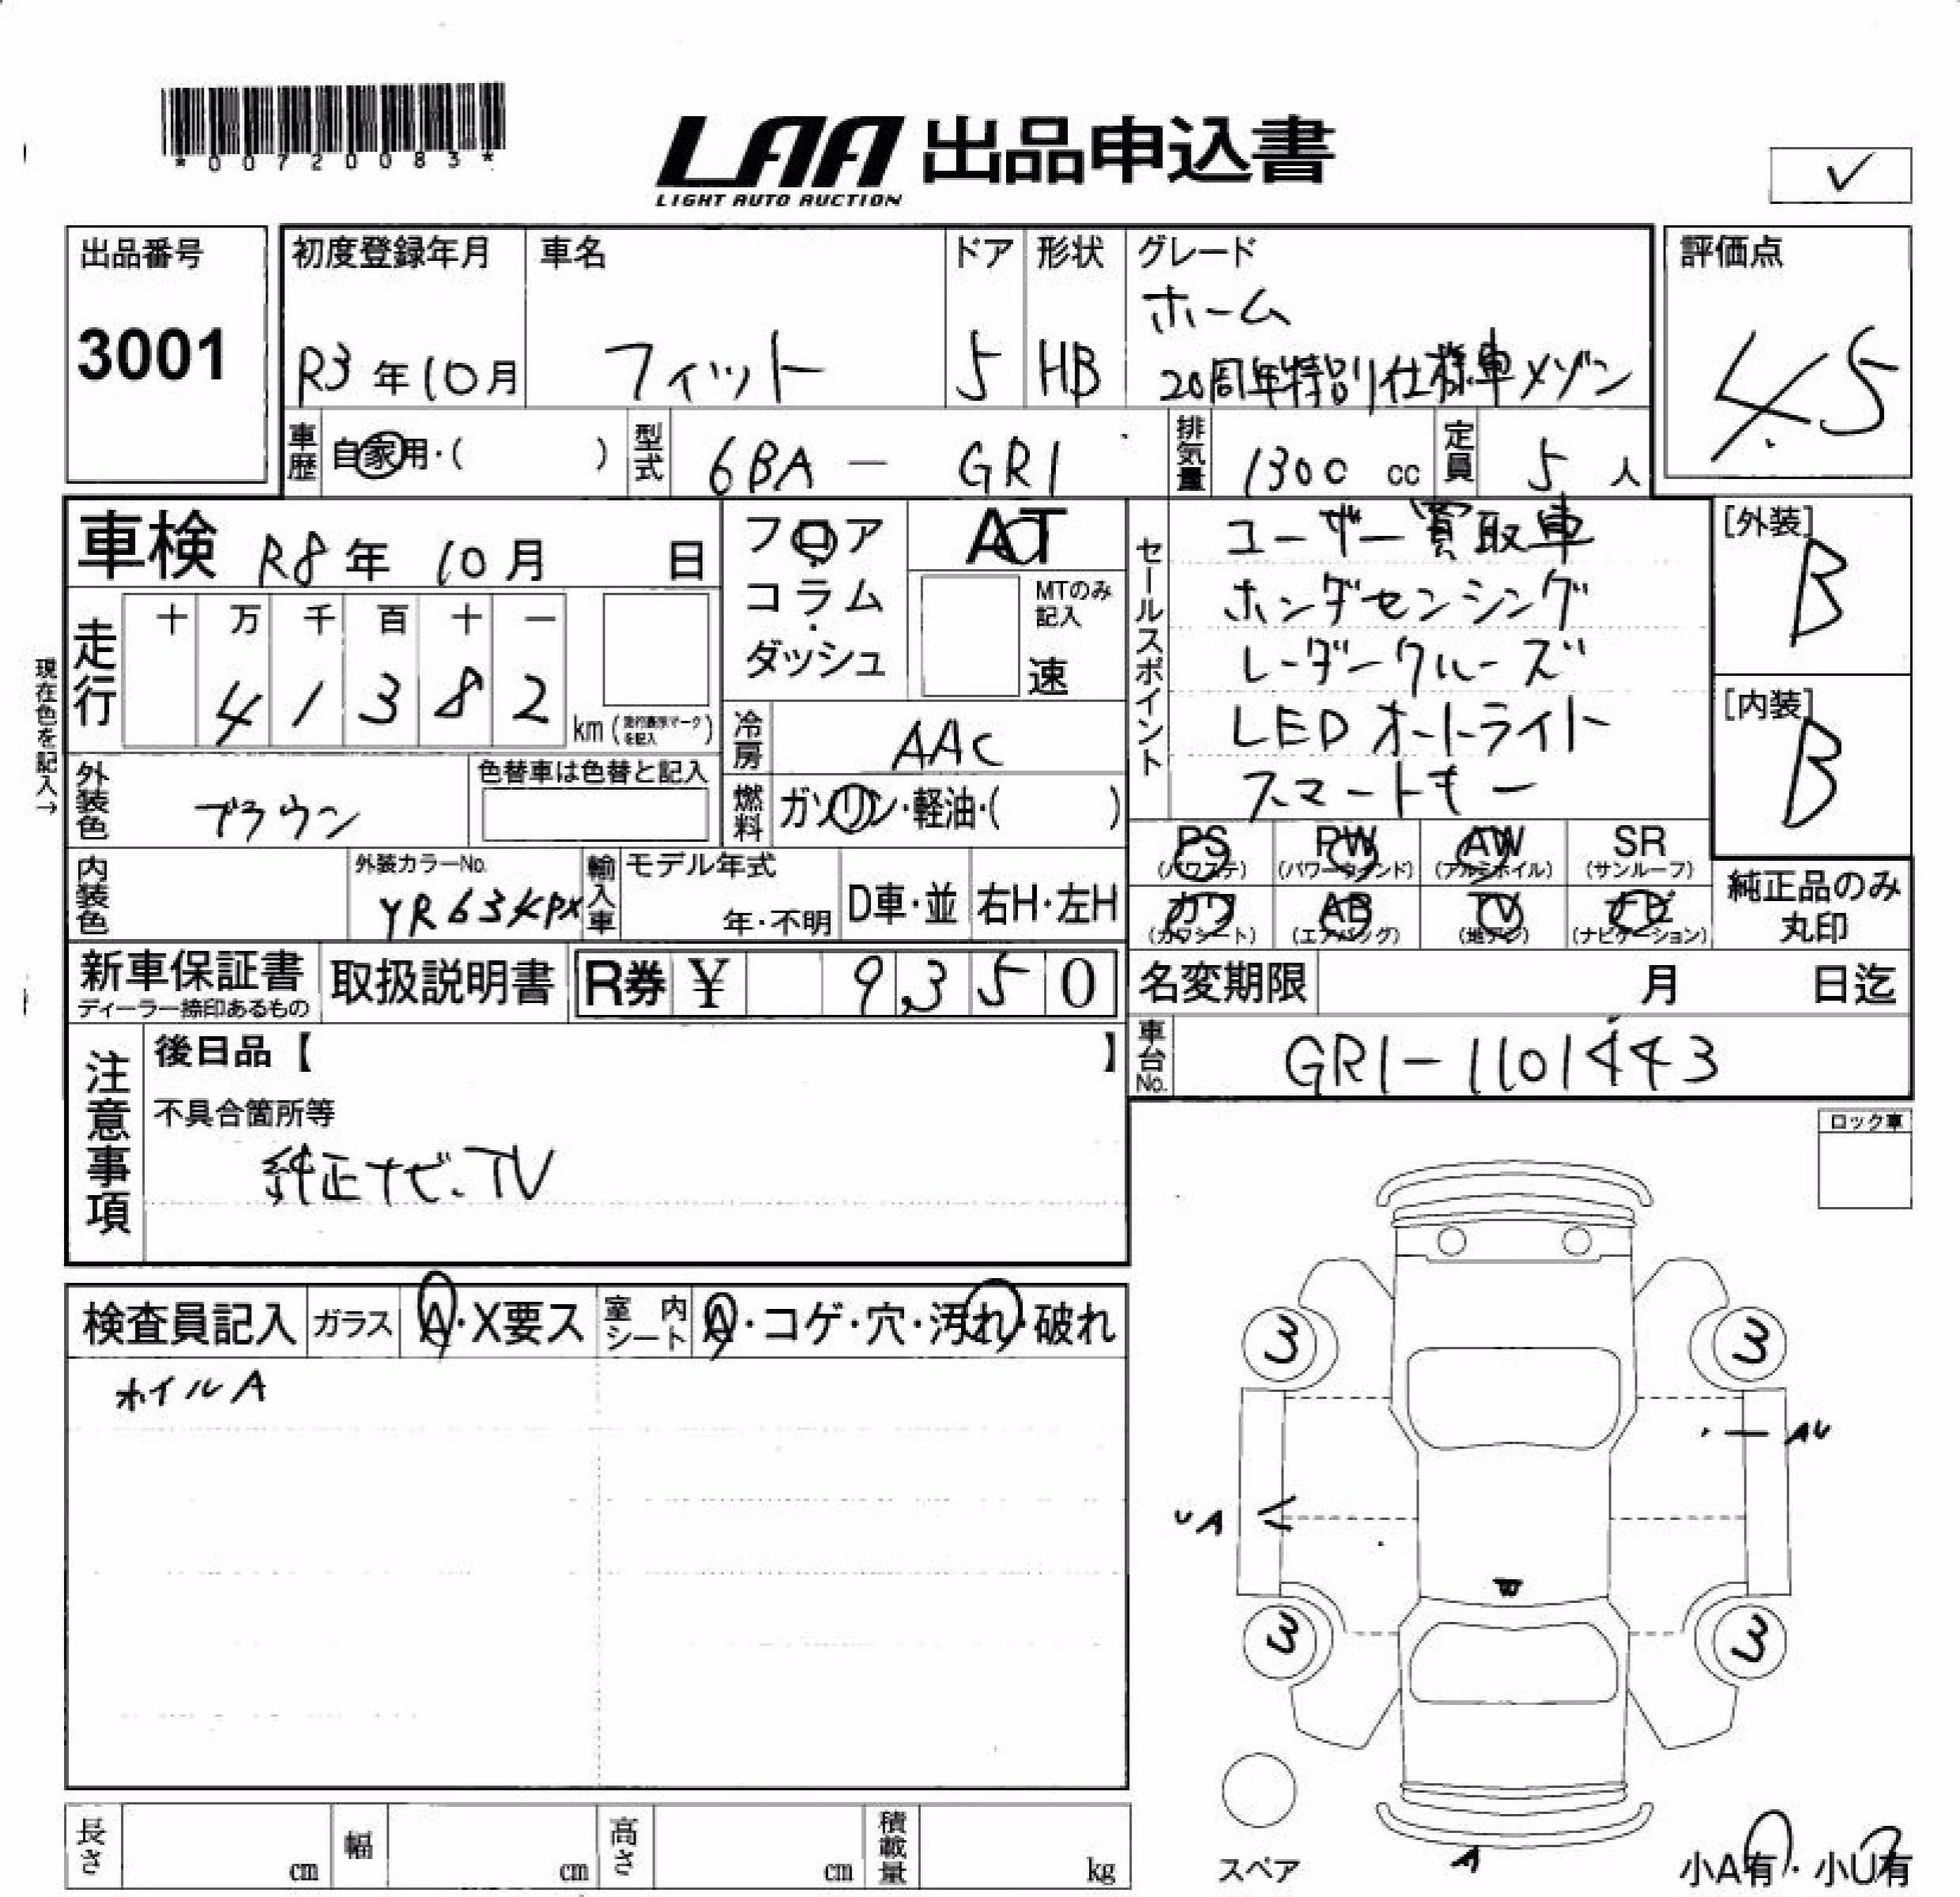 *00720083*
LAA 出品申込書
LIGHT AUTO AUCTION
✓
出品番号
3001
初度登録年月
R3年10月
車名
フィット
ドア
5
形状
HB
グレード
ホーム
20周年特別仕様車メゾン
評価点
4.5
車歴
自家用・( )
型式
6BA - GR1
排気量
1300 cc
定員
5人
車検 R8年 10月 日
フロア
コラム
ダッシュ
AT
MTのみ記入
速
セールスポイント
ユーザー買取車
ホンダセンシング
レーダークルーズ
LEDオートライト
スマートキー
[外装]
B
[内装]
B
現在色を記入→
走行
十 万 千 百 十 一
4 1 3 8 2
km (走行表示マークを記入)
冷房
AAC
外装色
ブラウン
色替車は色替と記入
燃料
ガソリン・軽油・( )
内装色
外装カラーNo.
YR634PX
輸入車
モデル年式
年・不明
D車・並
右H・左H
PS
(パワステ)
PW
(パワーウィンド)
AW
(アルミホイル)
SR
(サンルーフ)
カワ
(カワシート)
AB
(エアバッグ)
TV
(地デジ)
ナビ
(ナビゲーション)
純正品のみ
丸印
新車保証書
ディーラー捺印あるもの
取扱説明書
R券 ¥ 9,350
名変期限 月 日迄
車台No.
GR1-1101443
注意事項
後日品【 】
不具合箇所等
純正ナビ.TV
ロック車
検査員記入
ガラス
A・X要ス
室内シート
A・コゲ・穴・汚れ・破れ
ホイルA
3
3
AU
UA
W
3
3
スペア
A
小A有・小U有
長さ cm
幅 cm
高さ cm
積載量 kg